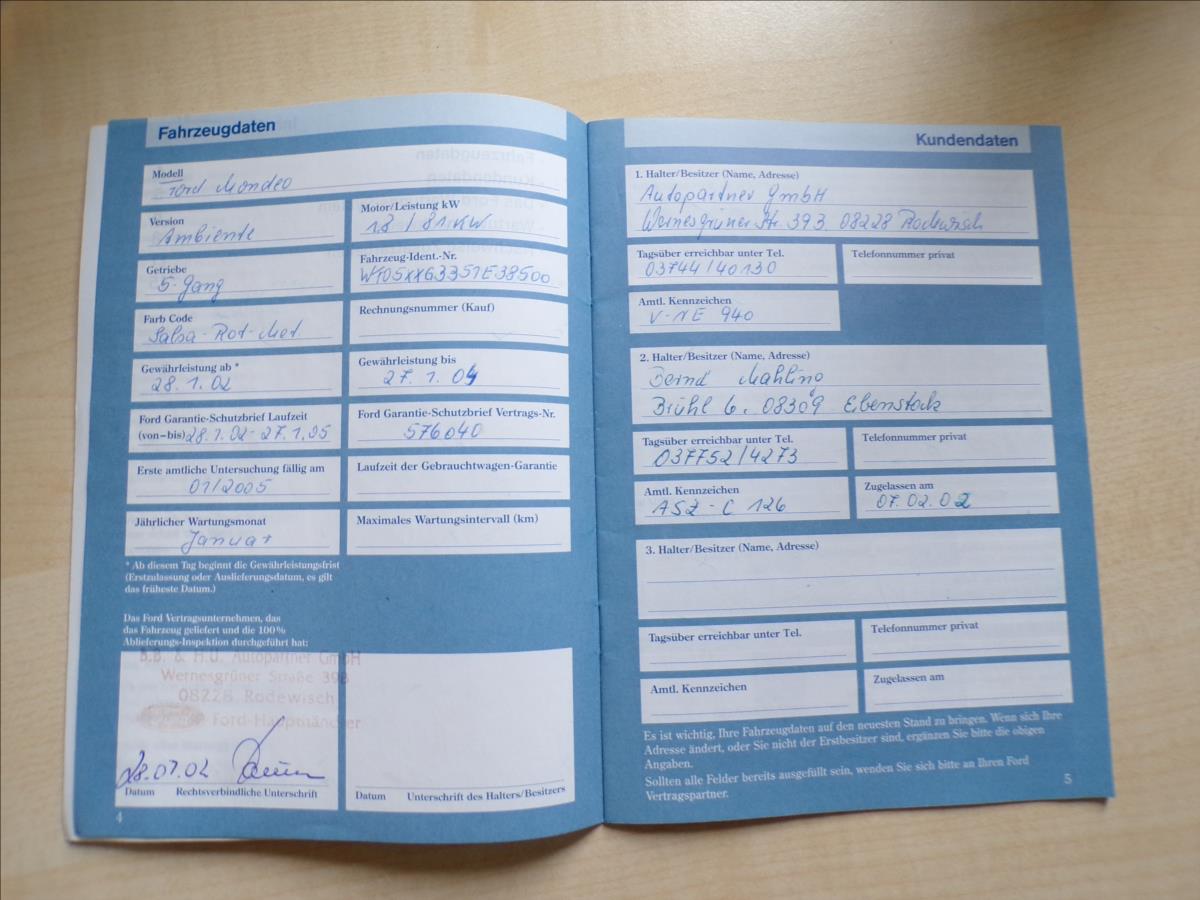 Fahrzeugdaten
Modell
Ford Mondeo
Version
Ambiente
Motor/Leistung kW
1.8 / 81 KW
Getriebe
5-Gang
Fahrzeug-Ident.-Nr.
Farb Code
Salsa-Rot-Met
Rechnungsnummer (Kauf)
Gewährleistung ab *
28.1.02
Gewährleistung bis
27.1.04
Ford Garantie-Schutzbrief Laufzeit
(von–bis) 28.1.02 - 27.1.05
Ford Garantie-Schutzbrief Vertrags-Nr.
576040
Erste amtliche Untersuchung fällig am
01/2005
Laufzeit der Gebrauchtwagen-Garantie
Jährlicher Wartungsmonat
Januar
Maximales Wartungsintervall (km)
* Ab diesem Tag beginnt die Gewährleistungsfrist
(Erstzulassung oder Auslieferungsdatum, es gilt
das früheste Datum.)
Das Ford Vertragsunternehmen, das
das Fahrzeug geliefert und die 100%
Ablieferungs-Inspektion durchgeführt hat:
B.B. & H.U. Autopartner GmbH
Wernesgrüner Straße 39B
08228 Rodewisch
Ford-Haupthändler
28.01.02
Datum Rechtsverbindliche Unterschrift
Datum Unterschrift des Halters/Besitzers
4
Kundendaten
1. Halter/Besitzer (Name, Adresse)
Autopartner GmbH
Wernesgrüner Str. 39B. 08228 Rodewisch
Tagsüber erreichbar unter Tel.
03744/40130
Telefonnummer privat
Amtl. Kennzeichen
V-NE 940
2. Halter/Besitzer (Name, Adresse)
Bernd Mahling
Brühl 6. 08309 Eibenstock
Tagsüber erreichbar unter Tel.
037752/4273
Telefonnummer privat
Amtl. Kennzeichen
ASZ-C 126
Zugelassen am
07.02.02
3. Halter/Besitzer (Name, Adresse)
Tagsüber erreichbar unter Tel.
Telefonnummer privat
Amtl. Kennzeichen
Zugelassen am
Es ist wichtig, Ihre Fahrzeugdaten auf den neuesten Stand zu bringen. Wenn sich Ihre
Adresse ändert, oder Sie nicht der Erstbesitzer sind, ergänzen Sie bitte die obigen
Angaben.
Sollten alle Felder bereits ausgefüllt sein, wenden Sie sich bitte an Ihren Ford
Vertragspartner.
5